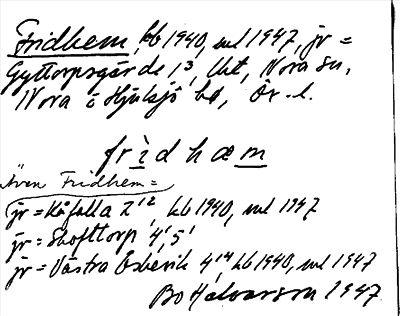 Fridhem, kb 1940, ml 1947, jr =
Gyttorpsgärde 1³, Uet, Nora sn,
Nora o Hjulsjö bd, Ör. l.
frìdhæm
Även Fridhem =
jr = Kåfalla 2¹², kb 1940, ml 1947
jr = Skofttorp 4¹, 5¹
jr = Västra Esbevik 4¹⁴, kb 1940, ml 1947
Bo Halvarson 1947